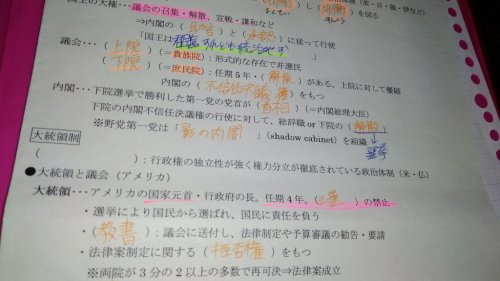 国王の大権…議会の召集・解散、宣戦・講和など
⇒内閣の( 助言 )と( 承認 )に従って行使
「国王は君臨すれども統治せず」
議会…(上院)(=貴族院):形式的な存在で非民選
(下院)(=庶民院):任期5年・(解散)がある、上院に対して優越
内閣の(不信任決議権)をもつ
内閣…下院選挙で勝利した第一党の党首が(首相)(=内閣総理大臣)
下院の内閣不信任決議権の行使に対して、総辞職 or 下院の(解散)
※野党第一党は「影の内閣」(shadow cabinet) を組織
選挙
大統領制
( ):行政権の独立性が強く権力分立が徹底されている政治体制(米・仏)
●大統領と議会(アメリカ)
大統領…アメリカの国家元首・行政府の長。任期4年。(三選)の禁止
・選挙により国民から選ばれ、国民に責任を負う
・(教書):議会に送付し、法律制定や予算審議の勧告・要請
・法律案制定に関する(拒否権)をもつ
※両院が3分の2以上の多数で再可決⇒法律案成立